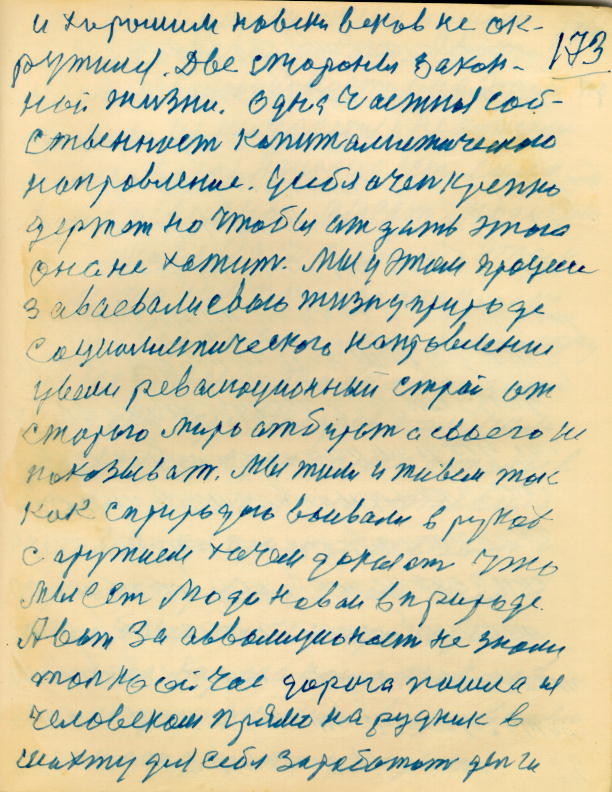 и хорошим навеки веков не ок-
ружил. Две стороны закон- 173
ной жизни. Одна частная соб-
ственност капиталистического
направление. Уебя очен крепко
держат но чтобы отдать этого
она не хатит. Мы у этом процесе
заваевали свою жизну природе
социалистического направлении
увели революционный строй от
старого мира отбират а своего не
показыват. Мы жили и живем так
как с природою воивали в руках
с аружием хочем доказат что
мы ест люди новаи в природе.
А вот за авволиционост не знали
толко сичас дорога пошла и
человеком прямо на рудник в
шахту для себя заработат денги